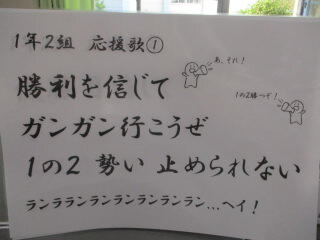 1年2組 応援歌①
あ、それ!
勝利を信じて
1の2勝つぞ!
ガンガン行こうぜ
1の2 勢い 止められない
ランラランランランランラン…ヘイ!